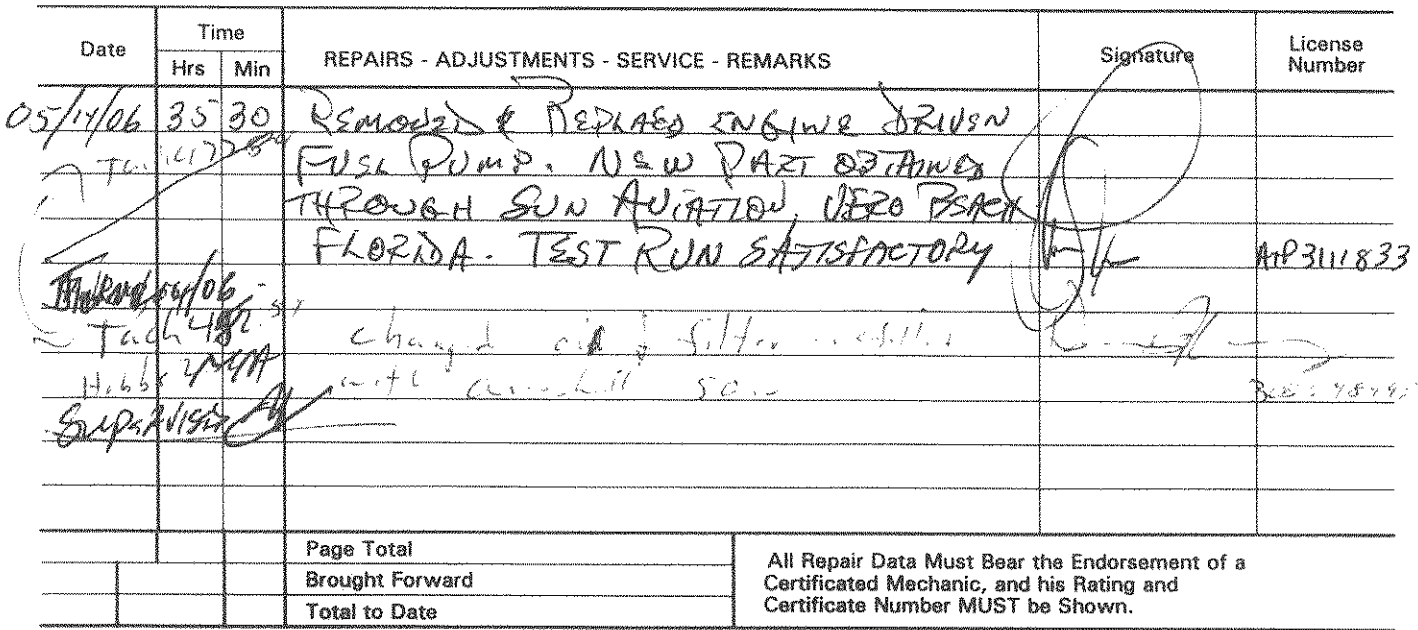 Date Time REPAIRS - ADJUSTMENTS - SERVICE - REMARKS Signature License Number
Hrs Min
05/14/06 35 30 REMOVED & REPLAED ENGINE DRIVEN
FUEL PUMP. NEW PART OBTAINED
THROUGH SUN AVIATION, VERO BEACH
FLORIDA. TEST RUN SATISFACTORY A&P3111833
Tach changed oil & filter
Hobbs with 50
Supervision
Page Total
Brought Forward
Total to Date
All Repair Data Must Bear the Endorsement of a
Certificated Mechanic, and his Rating and
Certificate Number MUST be Shown.